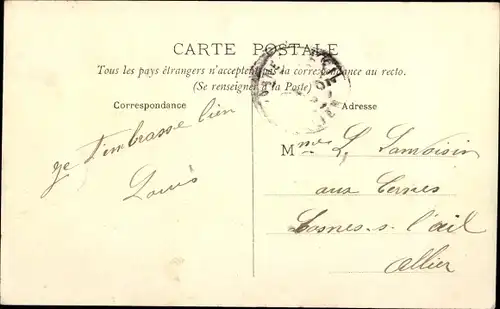 CARTE POSTALE
Tous les pays étrangers n'acceptent pas la correspondance au recto.
(Se renseigner à la Poste)
Correspondance
Adresse
je t'embrasse bien
Louis
Mme L. Lamoisin
aux Cernes
Cosnes-s. l'œil
Allier